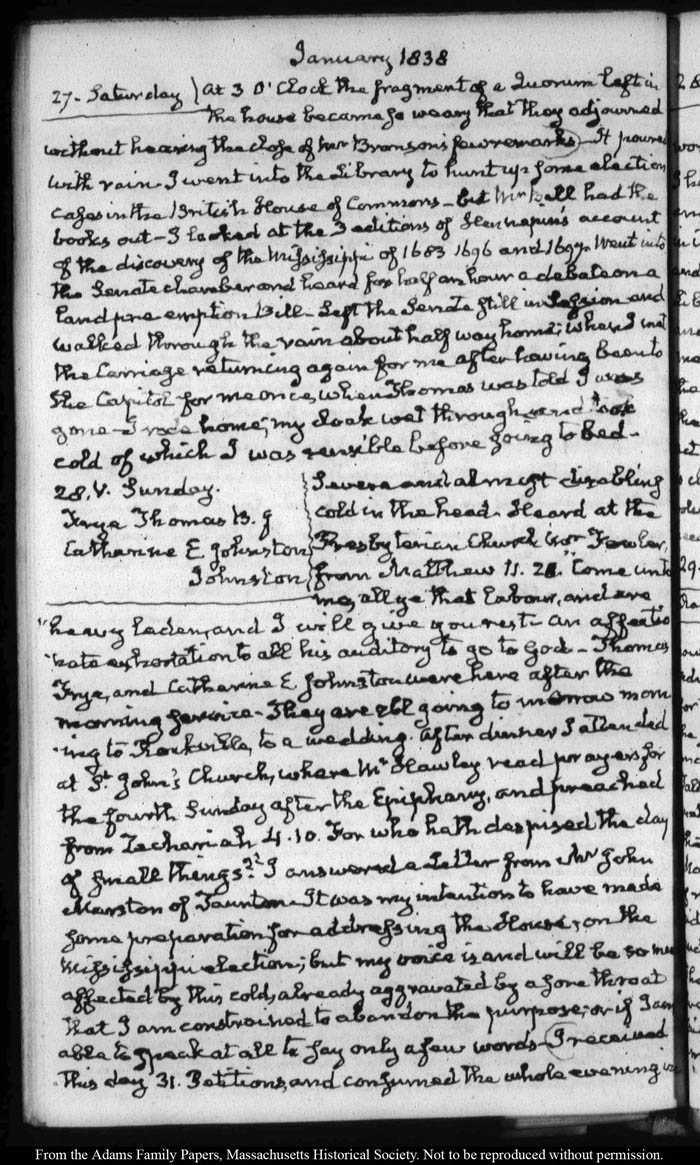 January 1838
27. Saturday) At 3 O'Clock the fragment of a Quorum left in
the house became so weary that they adjourned
without hearing the close of Mr Bronson's few remarks – It poured
with rain. I went into the Library to hunt up some election
cases in the British House of Commons – but Mr Bell had the
books out – I looked at the 3 editions of Hennepin's account
of the discovery of the Mississippi of 1683 1696 and 1697. Went into
the Senate chamber and heard for half an hour a debate on a
land pre-emption Bill – Left the Senate still in Session and
walked thorough the rain about half way home; where I met
the Carriage returning again for me after having been to
the Capitol for me once, when Thomas was told I was
gone – I rode home; my cloak wet through and took
cold of which I was sensible before going to bed –
28. V. Sunday.
Frye Thomas B. J
Catharine E Johnston
Johnston
Severe and almost disabling
cold in the head. Heard at the
Presbyterian Church Mr Fowler,
from Matthew 11. 28. "Come unto
me, all ye that labour, and are
"heavy laden, and I will give you rest – an affectio
"nate exhortation to all his auditory to go to God – Thomas
Frye, and Catharine E. Johnston were here after the
morning service – They are all going to morrow morn
"ing to Rockville, to a wedding. After dinner I attended
at St. John's Church, where Mr Hawley read prayers for
the fourth Sunday after the Epiphany, and preached
from Zechariah 4.10. For who hath despised the day
of small things?" I answered a Letter from Mr John
Marston of Taunton – It was my intention to have made
some preparation for addressing the House, on the
Mississippi election; but my voice is and will be so
affected by this cold, already aggravated by a sore throat
that I am constrained to abandon the purpose; or if I am
able to speak at all to say only a few words – I received
this day 31. Petitions, and consumed the whole evening in
From the Adams Family Papers, Massachusetts Historical Society. Not to be reproduced without permission.